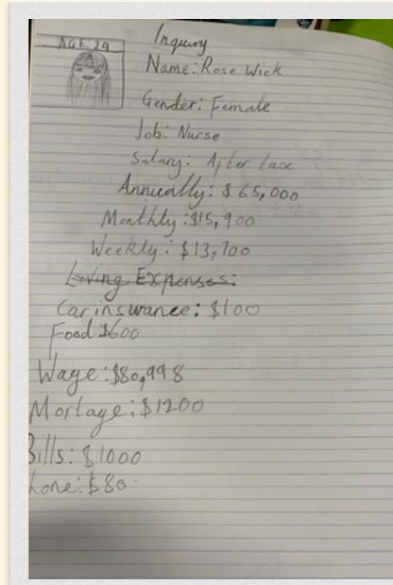 AGE: 29
Inquiry
Name: Rose Wick
Gender: Female
Job: Nurse
Salary: After tax
Annually: $65,000
Monthly: $15,900
Weekly: $13,700
Living Expenses:
Car inswance: $100
Food $600
Wage: $80,998
Mortage: $1200
Bills: $1000
hone: $80